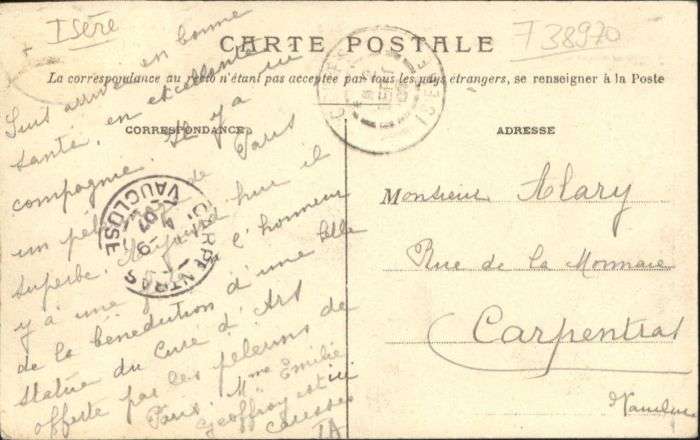 + Isère
738970
CARTE POSTALE
La correspondance au recto n'étant pas acceptée par tous les pays étrangers, se renseigner à la Poste
CORRESPONDANCE
ADRESSE
Suis arrivée en bonne
santé, en excellente
compagnie. Il y a
un de Paris
superbe. Aujourd'hui il
y a une l'honneur
de la bénédiction d'une belle
statue du Curé d'Ars
offerte par les pèlerins de
Paris. Mme Emilie
Geoffroy est ici
Monsieur Alary
Rue de la Monnaie
Carpentras
Vaucluse
CARPENTRAS
VAUCLUSE
ISERE